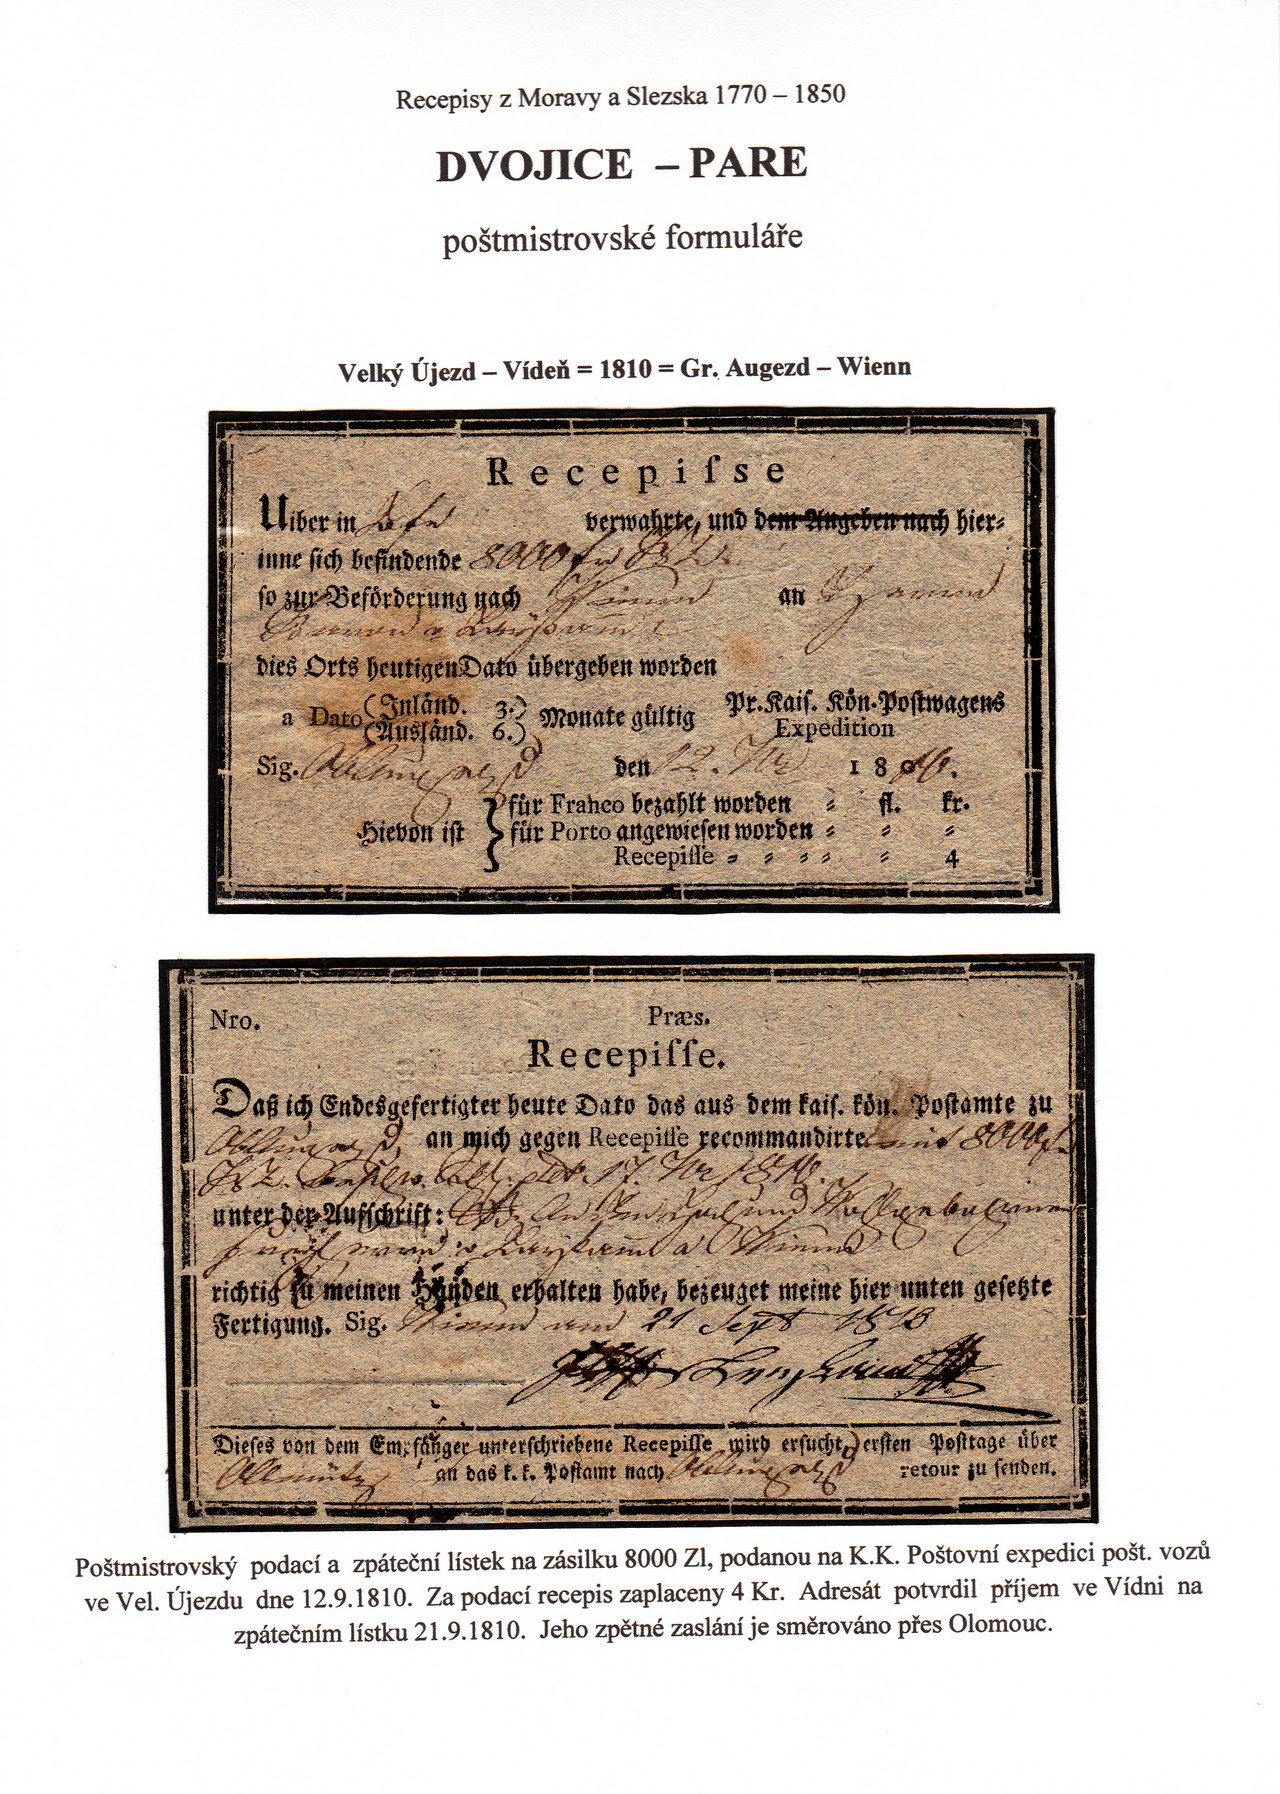 Recepisy z Moravy a Slezska 1770 – 1850
DVOJICE – PARE
poštmistrovské formuláře
Velký Újezd – Vídeň = 1810 = Gr. Augezd – Wienn
Recepiſse
Uiber in verwahrte, und dem Angeben nach hier⸗
inne ſich befindende 8000
ſo zur Beförderung nach Wienn an
dies Orts heutigen Dato übergeben worden
a Dato (Inländ. 3.) Monate gültig Pr. Kaiſ. Kön. Poſtwagens
(Ausländ. 6.) Expedition
Sig. den 12. 1810.
Hievon iſt } für Franco bezahlt worden ⸗ fl. kr.
für Porto angewieſen worden ⸗ ⸗ ⸗
Recepiſſe ⸗ ⸗ ⸗ ⸗ ⸗ 4
Nro. Præs.
Recepiſſe.
Daß ich Endesgefertigter heute Dato das aus dem kaiſ. kön. Poſtamte zu
an mich gegen Recepiſſe recommandirte mit 8000
17. 1810.
unter der Aufſchrift:
a Wienn
richtig zu meinen Händen erhalten habe, bezeuget meine hier unten geſetzte
Fertigung. Sig. Wienn am 21 Sept 1810
Dieſes von dem Empfänger unterſchriebene Recepiſſe wird erſucht, erſten Poſttage über
Ollmütz an das k. k. Poſtamt nach retour zu ſenden.
Poštmistrovský podací a zpáteční lístek na zásilku 8000 Zl, podanou na K.K. Poštovní expedici pošt. vozů
ve Vel. Újezdu dne 12.9.1810. Za podací recepis zaplaceny 4 Kr. Adresát potvrdil příjem ve Vídni na
zpátečním lístku 21.9.1810. Jeho zpětné zaslání je směrováno přes Olomouc.